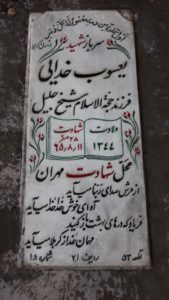 سرباز شهید
یعسوب خدایی
فرزند حجة الاسلام شیخ جلیل
ولادت
۱۳۴۴
شهادت
۲۸ صفر
۶۵/۸/۱۱
محل شهادت مهران
از عرش صدای ربنا میآید
آوای خوش خدا خدا میآید
فریاد که درهای بهشت باز کنید
مهمان خدا از کربلا میآید
قطعه ۵۳ ردیف ۷۱ شماره ۱۵